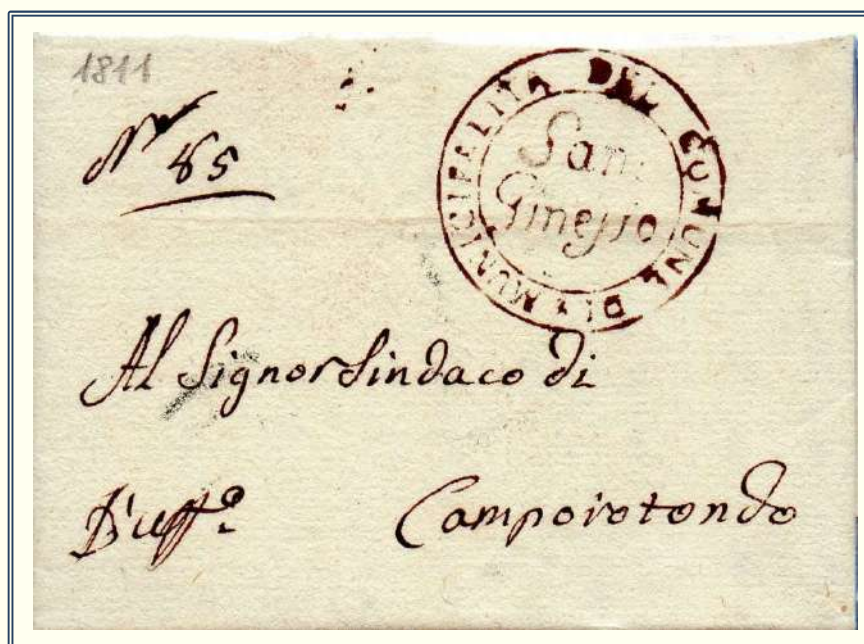 1811
N.º 85
MUNICIPALITA DEL COMUNE DI
San
Ginesio
Al Signor Sindaco di
D'uff.º Camporotondo